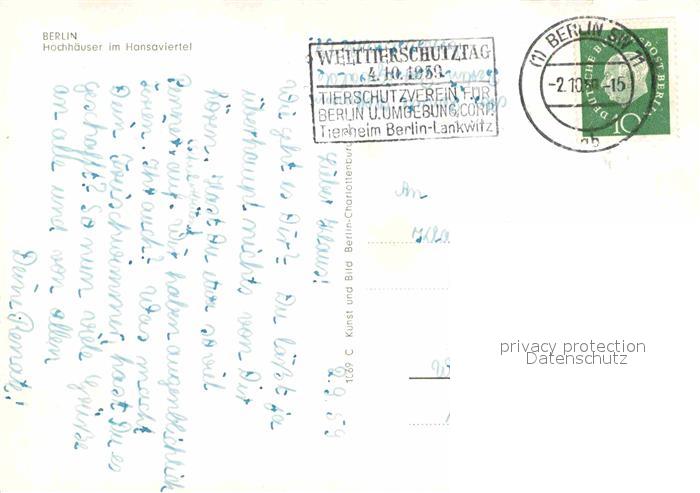 BERLIN
Hochhäuser im Hansaviertel
WELTTIERSCHUTZTAG
4.10.1959
TIERSCHUTZVEREIN FÜR
BERLIN U.UMGEBUNG CORP.
Tierheim Berlin-Lankwitz
(1) BERLIN SW 11
-2.10.59.-15
gb
DEUTSCHE BUNDESPOST BERLIN
10
1069 C Kunst und Bild Berlin-Charlottenburg
2.9.59
Lieber Klaus!
Wie geht es Dir? Du läßt ja
überhaupt nichts von Dir
hören. Hast Du so viel
wir haben augenblicklich
auch? Was macht
Dein hast Du es
geschafft? So nun viele Grüße
an alle und von allen
Deine Renate!
An
privacy protection
Datenschutz